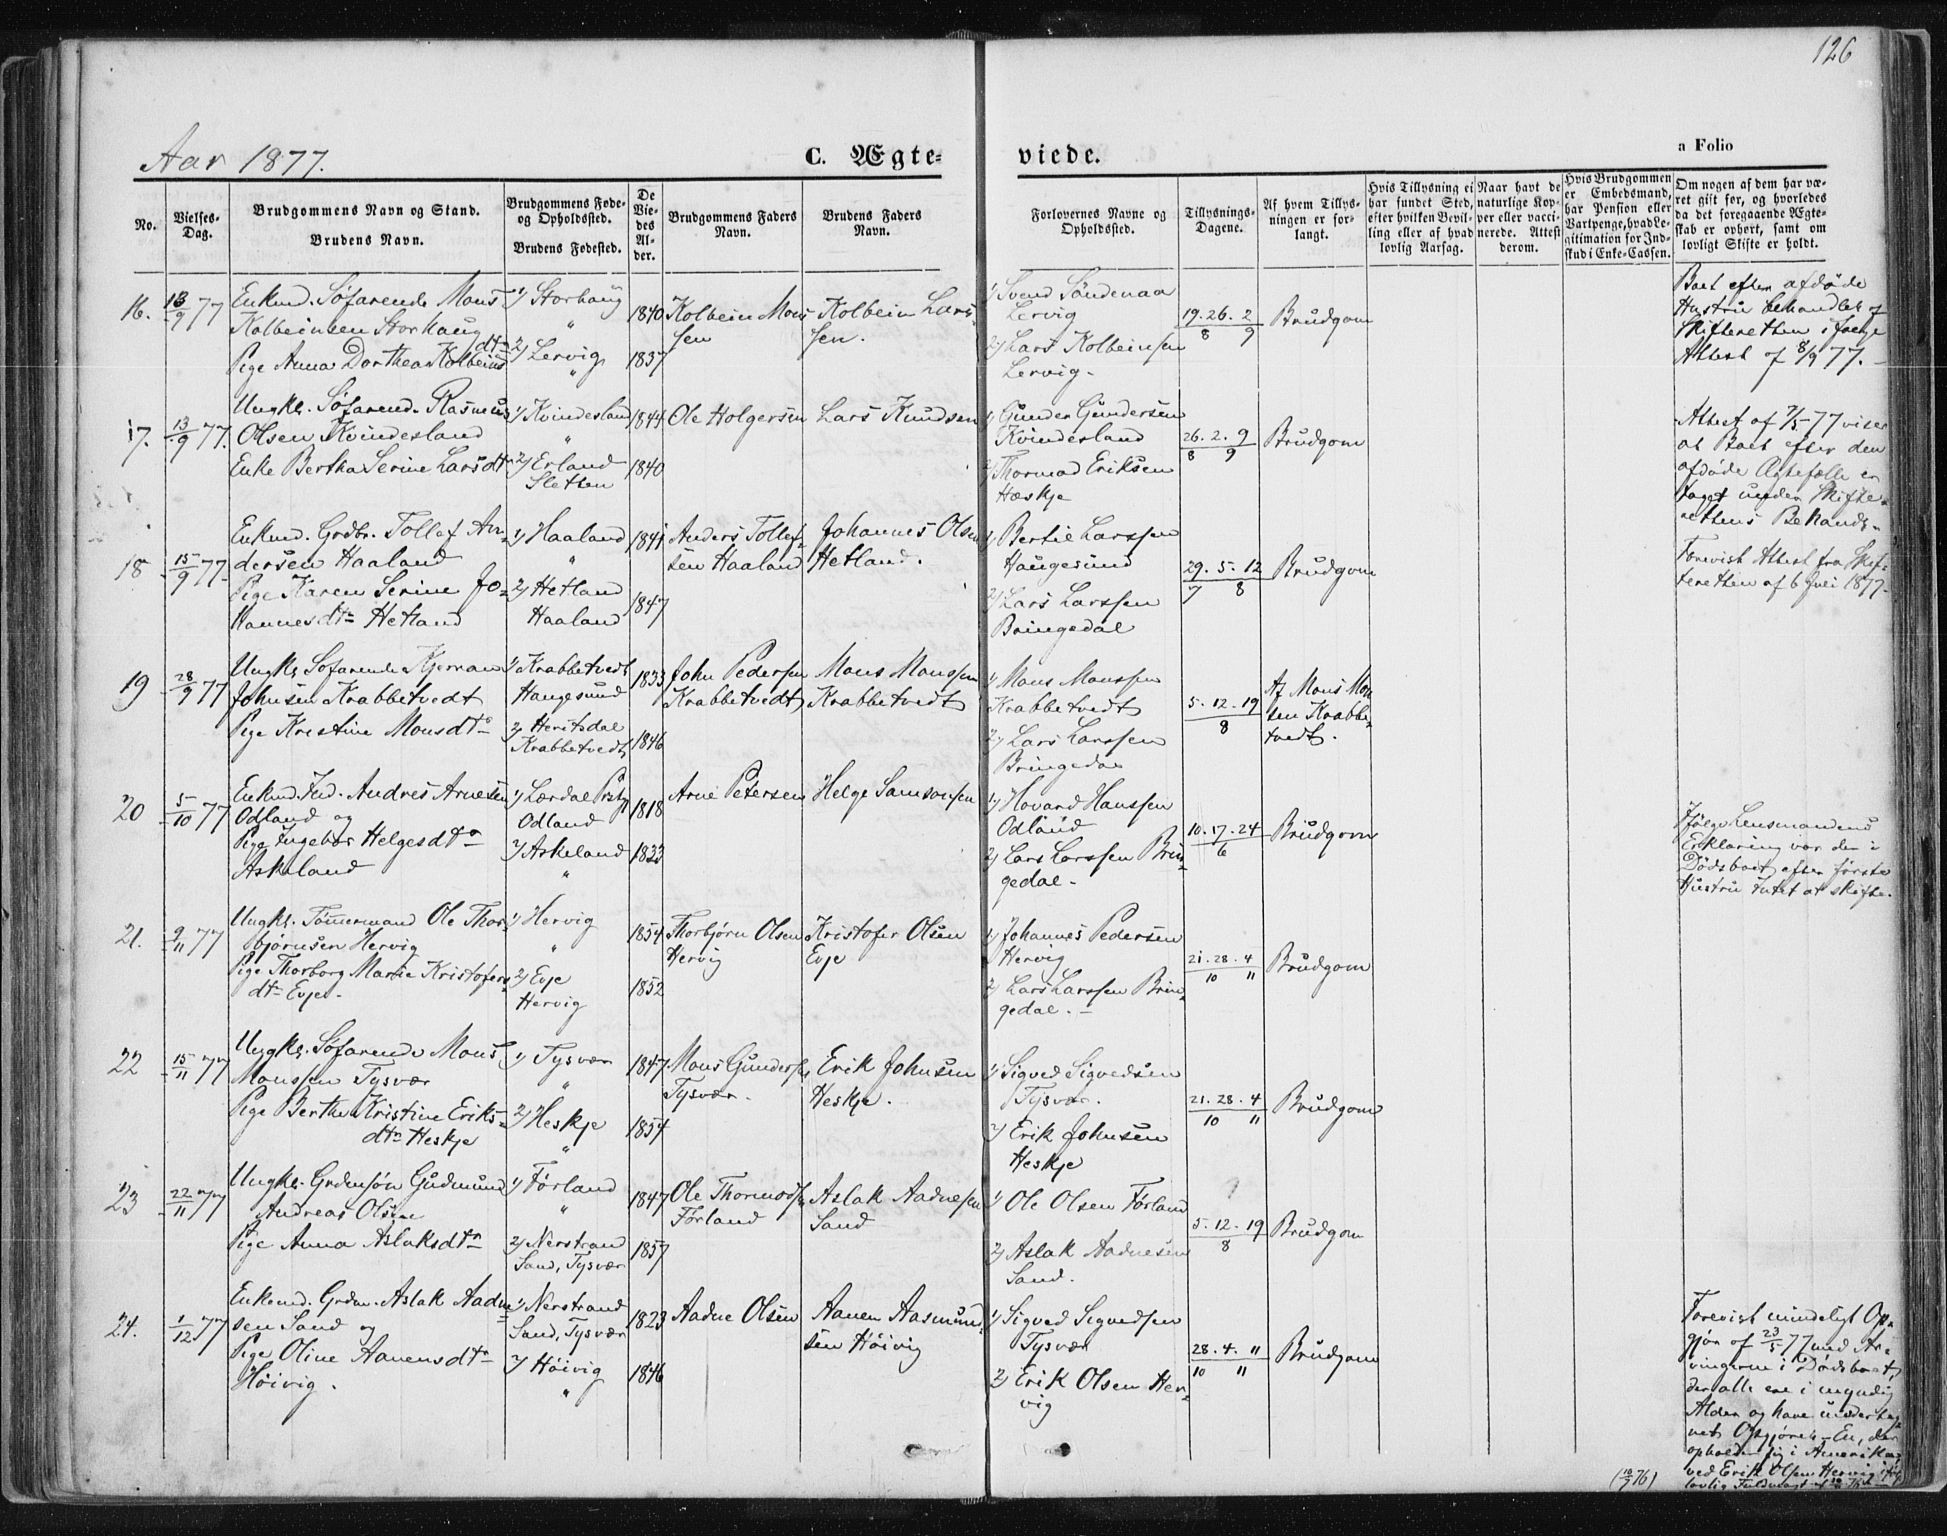 126
Aar 1877.
C. Ægte-
viede.
a Folio
No.
Vielses-
Dag.
Brudgommens Navn og Stand.
Brudens Navn.
Brudgommens Føde-
og Opholdssted.
Brudens Fødested.
De
Vie-
des
Al-
der.
Brudgommens Faders
Navn.
Brudens Faders
Navn.
Forlovernes Navne og
Opholdssted.
Tillysnings-
Dagene.
Af hvem Tillys-
ningen er for-
langt.
Hvis Tillysning ei
har fundet Sted,
efter hvilken Bevil-
ling eller af hvad
lovlig Aarsag.
Naar havt de
naturlige Kop-
per eller vacci-
nerede. Attest
derom.
Hvis Brudgommen
er Embedsmand,
har Pension eller
Vartpenge, hvad Le-
gitimation for Ind-
skud i Enke-Cassen.
Om nogen af dem har væ-
ret gift før, og hvorledes
da det foregaaende Ægte-
skab er ophørt, samt om
lovligt Skifte er holdt.
16.
13/9 77
Enkmd. Søfarende Mons
Kolbeinsen Storhaug
Pige Anna Dorthea Kolbeinsdtr
1) Storhaug
"
2) Lervig
"
1840
1837
Kolbein Mons
sen
Kolbein Lars-
sen.
1) Svend Söndenaa
Lervig
2) Lars Kolbeinsen
Lervig.
19. 26. 2
8 9
Brudgom
Boet efter afdøde
Hustru behandlet af
Skifteretten ifølge
Attest af 8/9 77.
17.
13/9 77.
Ungkl. Søfarend. Rasmus
Olsen Kvindesland
Enke Bertha Serine Larsdtr
1) Kvindesland
"
2) Erland
Sletten
1844
1840
Ole Holgersen
Lars Knudsen
1) Gunder Gundersen
Kvindesland
2) Thormod Eriksen
Hæskje
26. 2. 9
8 9
Brudgom
Attest af 7/5 77 viser
at Boet efter den
afdøde Ægtefælle er
taget under Skifte-
rettens Behandl.
18
15/9 77
Enkmd. Grdbr. Tollef An-
dersen Haaland
Pige Karen Serine Jo-
hannesdtr Hetland
1) Haaland
"
2) Hetland
Haaland
1841
1847
Anders Tollef-
sen Haaland
Johannes Olsen
Hetland.
1) Bertil Larssen
Haugesund
2) Lars Larssen
Bringedal
29. 5. 12
7 8
Brudgom
Forevist Attest fra Skif-
teretten af 6 Juli 1877.
19
28/9 77
Ungkl. Søfarende Kjernan
Johnsen Krabbetvedt
Pige Kristine Monsdtr
1) Krabbetvedt
Haugesund
2) Heritsdal
Krabbetvedt
1833
1846
John Pedersen
Krabbetvedt
Mons Monssen
Krabbetvedt
1) Mons Monssen
Krabbetvedt
2) Lars Larssen
Bringedal
5. 12. 19
8
Af Mons Mon
sen Krabbe-
tvedt.
20
5/10 77
Enkmd. Ind. Andres Arnesen
Odland og
Pige Ingebor Helgesdtr
Askeland
1) Lærdal Prstg
Odland
2) Askeland
"
1818
1833
Arne Petersen
Helge Samsonsen
1) Hovard Hanssen
Odland
2) Lars Larssen Brin-
gedal.
10. 17. 24
6
Brudgom
Ifølge Lensmandens
Erklæring var der i
Dødsboet efter første
Hustru Intet at skifte.
21.
9/11 77
Ungkl. Tømmermand Ole Thor-
bjørnsen Hervig
Pige Thorborg Marie Kristofers-
dtr Evje.
1) Hervig
"
2) Evje
Hervig
1854
1852
Thorbjørn Olsen
Hervig
Kristofer Olsen
Evje
1) Johannes Pedersen
Hervig
2) Lars Larssen Brin-
gedal.
21. 28. 4
10 11
Brudgom
22
15/11 77
Ungkl. Søfarende Mons
Monssen Tysvær
Pige Berthe Kristine Eriks-
dtr Heskje
1) Tysvær
"
2) Heskje
"
1847
1854
Mons Gunderse
Tysvær.
Erik Johnsen
Heskje.
1) Sigved Sigvedsen
Tysvær.
2) Erik Johnsen
Heskje
21. 28. 4
10 11
Brudgom
23
22/11 77
Ungkl. Grdmsøn Gudmund
Andreas Olsen
Pige Anna Aslaksdtr
1) Førland
"
2) Nerstrand
Sand, Tysvær
1847
1857
Ole Thormods
Førland
Aslak Aadnesen
Sand
1) Ole Olsen Førland
2) Aslak Aadnesen
Sand.
5. 12. 19
8
Brudgom
24.
1/12 77
Enkemd. Grdm. Aslak Aadne
sen Sand og
Pige Oline Aanensdtr
Høivig.
1) Nerstrand
Sand, Tysvær
2) Høivig
"
1823
1846
Aadne Olsen
Aanen Aasmund-
sen Høivig
1) Sigved Sigvedsen
Tysvær
2) Erik Olsen Her-
vig
28. 4. 11
10 11
Brudgom
Forevist mindeligt Op-
gjør af 23/5 77 med Ar-
vingerne i Dødsboet,
der alle ere i myndig
Alder og have underteg-
net Opgjøret. En, der
opholder sig i Amerika,
ved Erik Olsen Hervig
lovlig Fuldmagt
(10/7 76)